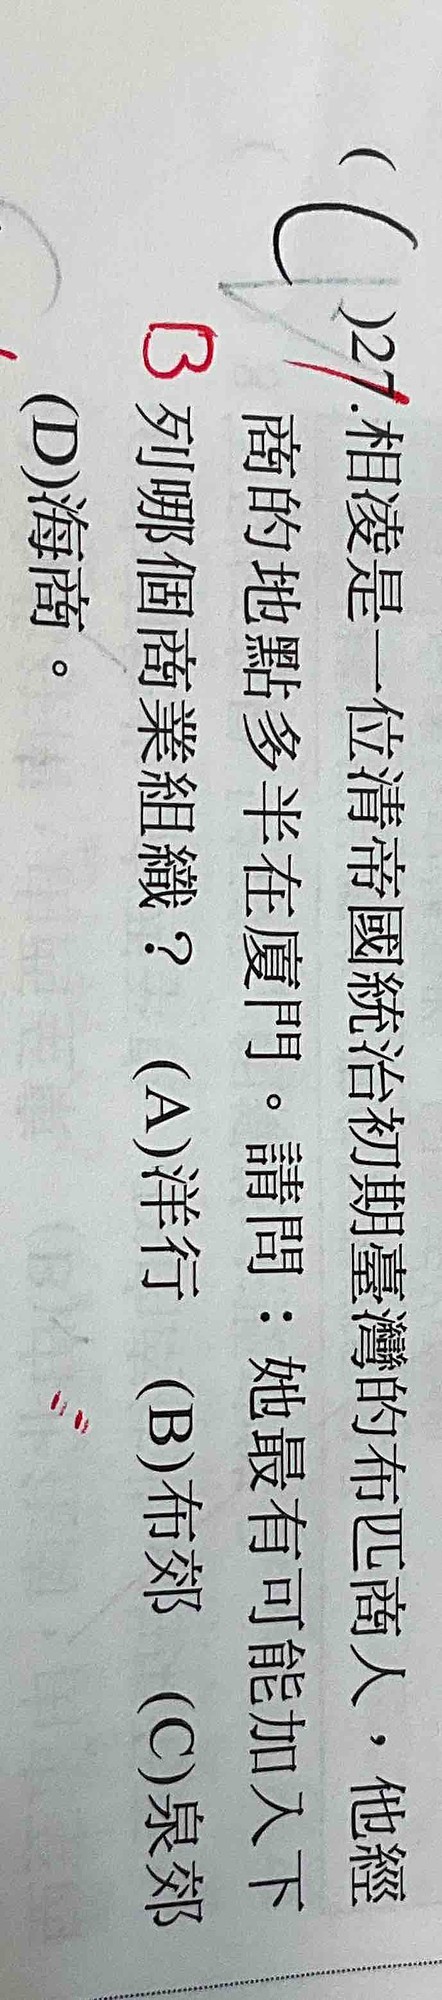 ( C )27.相凌是一位清帝國統治初期臺灣的布匹商人，他經
商的地點多半在廈門。請問：她最有可能加入下
B 列哪個商業組織？ (A)洋行 (B)布郊 (C)泉郊
(D)海商。